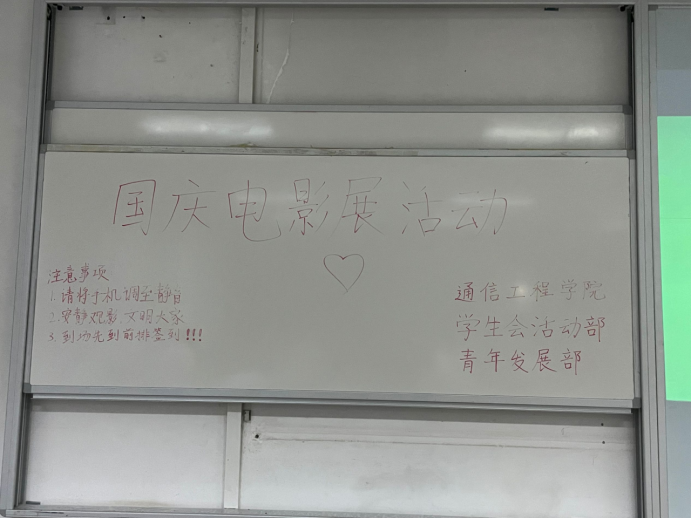 国庆电影展活动
注意事项
1.请将手机调至静音
2.安静观影 文明大家
3.到场先到前排签到!!!
通信工程学院
学生会活动部
青年发展部